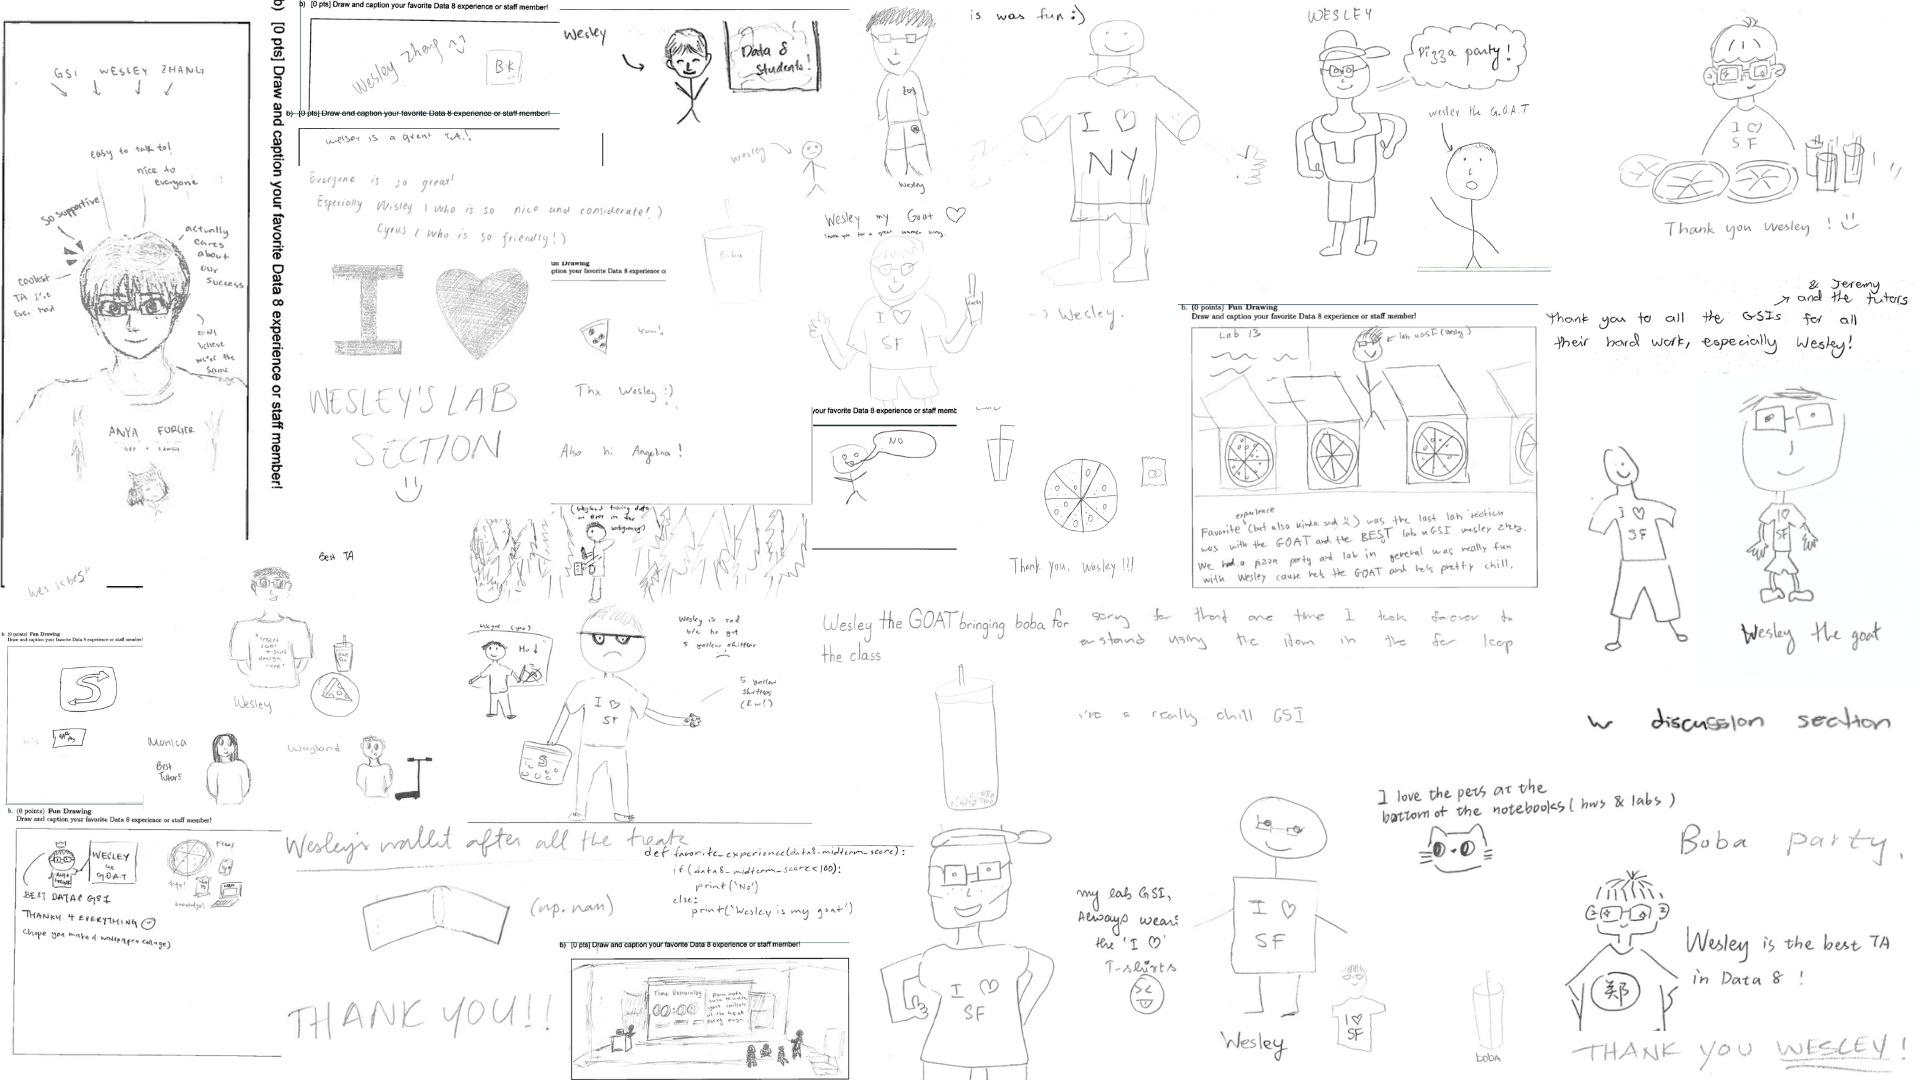 GSI WESLEY ZHANG
easy to talk to!
nice to
everyone
so supportive
actually
cares
about
our
success
coolest
TA I've
ever had
can't
believe
we're the
same
age
ANYA FORGER
Wes is best
b) [0 pts] Draw and caption your favorite Data 8 experience or staff member!
b) [0 pts] Draw and caption your favorite Data 8 experience or staff member!
Wesley Zheng
BK
b) [0 pts] Draw and caption your favorite Data 8 experience or staff member!
welsey is a great TA!!
Everyone is so great!
Especially Wisley (who is so nice and considerate!)
Cyrus (who is so friendly!)
Wesley
Data 8
Students!
wesley
Boba
Wesley
Wesley my Goat
I ♡
SF
is was fun :)
I ♡
NY
-> Wesley.
WESLEY
Pizza party!
wesley the G.O.A.T
I ♡
SF
Thank you Wesley ! :)
I ♥
WESLEY'S LAB
SECTION
un Drawing
ption your favorite Data 8 experience o
Yum!
Thx Wesley :)
Also hi Angelina!
your favorite Data 8 experience or staff memb
NO
Thank you, Wesley !!!
b. (0 points) Fun Drawing
Draw and caption your favorite Data 8 experience or staff member!
Lab 13
<- lab uGSI (Wesley)
experience
Favorite (but also kinda sad :() was the last lab section
was with the GOAT and the BEST lab uGSI wesley zheng.
We had a pizza party and lab in general was really fun
with Wesley cause he's the GOAT and he's pretty chill.
& Jeremy
and the tutors
Thank you to all the GSIs for all
their hard work, especially Wesley!
I ♡
SF
I ♡
SF
Wesley the goat
W discussion section
Best TA
Wesley
Monica
Best
Tutors
Wayland
b. (0 points) Fun Drawing
Draw and caption your favorite Data 8 experience or staff member!
S
Wesley is sad
b/c he got
5 yellow skittles
5 yellow
skittles
(Ew!)
I ♡
SF
S
Wesley the GOAT bringing boba for
the class
sorry for that one time I took forever to
understand using the item in the for loop
ur a really chill GSI
b. (0 points) Fun Drawing
Draw and caption your favorite Data 8 experience or staff member!
WESLEY
the
GOAT
BEST DATA8 GSI
THANKU 4 EVERYTHING
(hope you make a wallpaper collage)
pizza
knowledge!
Wesley's wallet after all the treats
(np.nan)
THANK YOU!!
def favorite_experience(data8_midterm_score):
if (data8_midterm_score<100):
print('No')
else:
print('Wesley is my goat')
b) [0 pts] Draw and caption your favorite Data 8 experience or staff member!
Time Remaining
00:00
I ♡
SF
my lab GSI,
Always wears
the 'I ♡'
T-shirts
I ♡
SF
Wesley
I ♡
SF
I love the pets at the
bottom of the notebooks (hws & labs)
Boba party.
boba
郑
Wesley is the best TA
in Data 8 !
THANK YOU WESLEY!